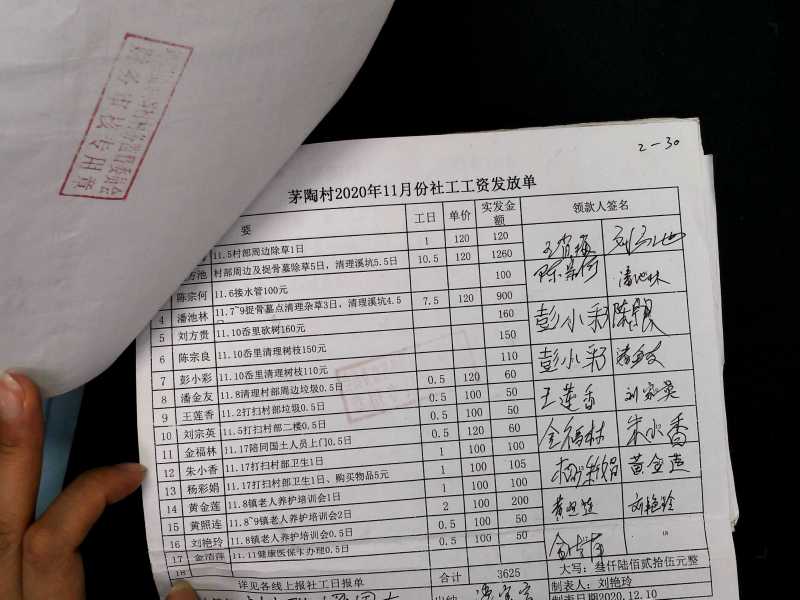 2-30
茅陶村2020年11月份社工工资发放单
要 工日 单价 实发金额 领款人签名
11.5村部周边除草1日 1 120 120
方池 村部周边及捉骨墓除草5日，清理溪坑5.5日 10.5 120 1260
陈宗何 11.6接水管100元 100
4 潘池林 11.7~9捉骨墓点清理杂草3日，清理溪坑4.5 7.5 120 900
5 刘方贵 11.10岙里砍树160元 160
6 陈宗良 11.10岙里清理树枝150元 150
7 彭小彩 11.10岙里清理树枝110元 110
8 潘金友 11.8清理村部周边垃圾0.5日 0.5 120 60
9 王莲香 11.2打扫村部垃圾0.5日 0.5 100 50
10 刘宗英 11.5打扫村部二楼0.5日 0.5 100 50
11 金福林 11.17陪同国土人员上门0.5日 0.5 120 60
12 朱小香 11.17打扫村部卫生1日 1 100 100
13 杨彩娟 11.17打扫村部卫生1日、购买物品5元 1 100 105
14 黄金莲 11.8镇老人养护培训会1日 1 100 100
15 黄照连 11.8~9镇老人养护培训会2日 2 100 200
16 刘艳玲 11.8镇老人养护培训会0.5日 0.5 100 50
17 11.11健康医保卡办理0.5日 0.5 100 50
18
详见各线上报社工日报单 合计 3625 大写：叁仟陆佰贰拾伍元整
制表人：刘艳玲
制表日2020.12.10
彭小彩 陈银
彭小彩
王莲香 刘宗英
金福林 朱小香
杨彩娟 黄金莲
黄照连 刘艳玲
18
专用章